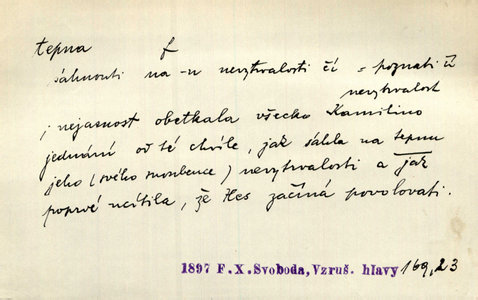 tepna f
sáhnouti na -u nevytrvalosti čí = poznati čí
nevytrvalost
; nejasnost obetkala všecko Kamilino
jednání od té chvíle, jak sáhla na tepnu
jeho (svého snoubence) nevytrvalosti a jak
poprvé ucítila, že Hes začíná povolovati.
1897 F. X. Svoboda, Vzruš. hlavy 169,23